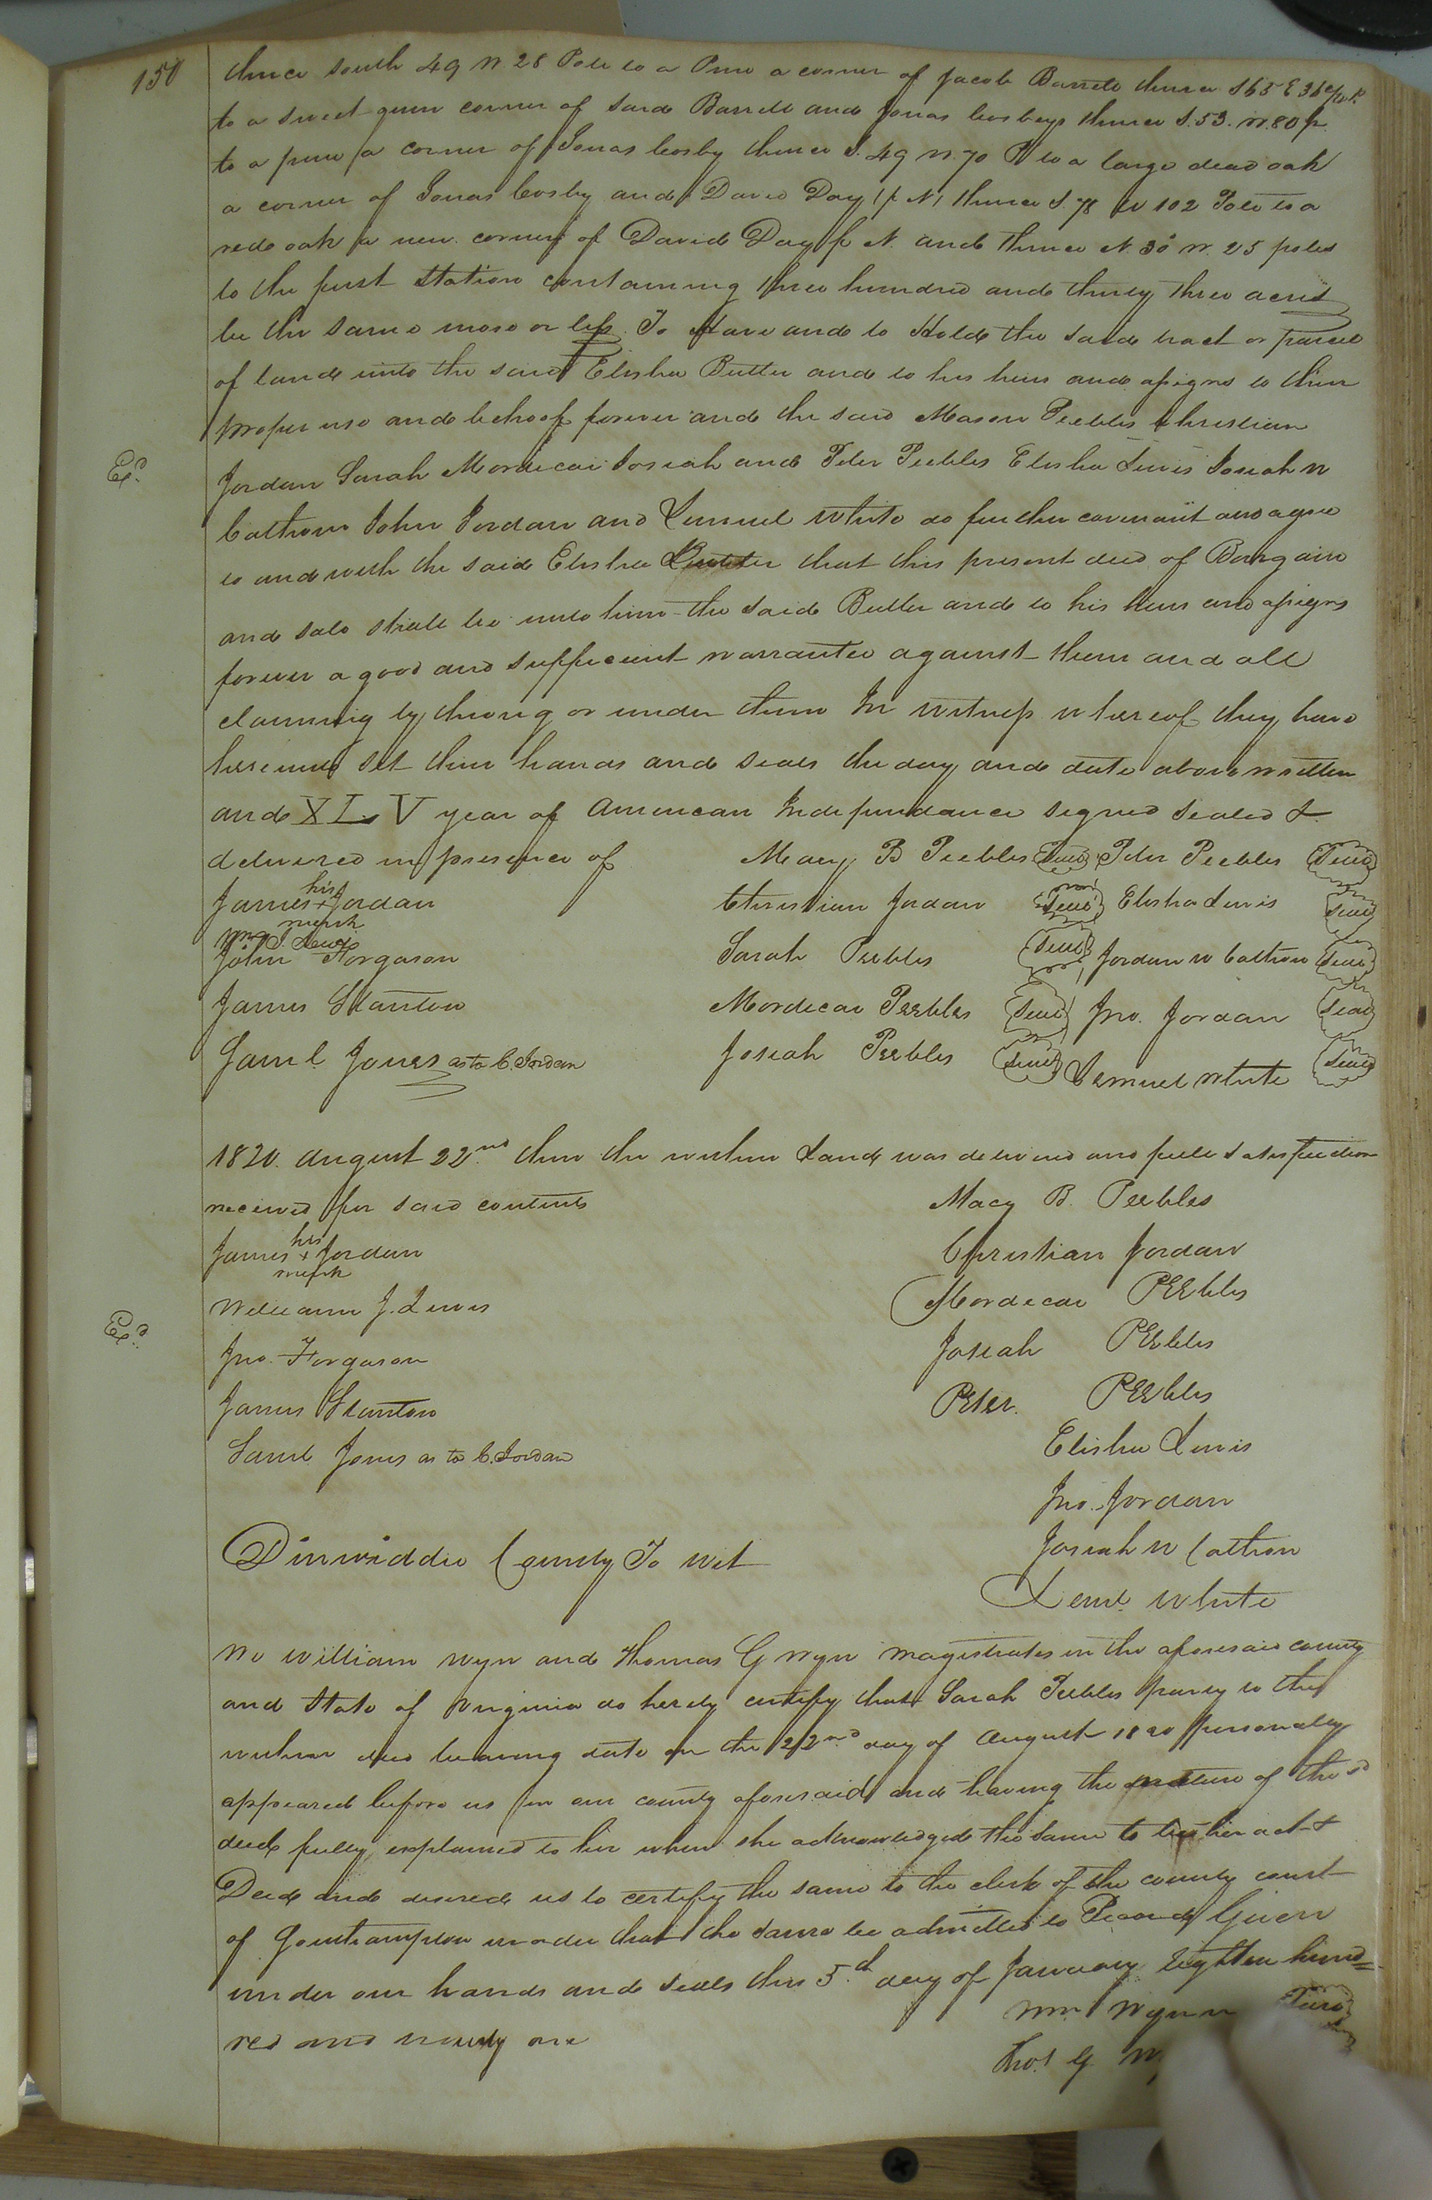 150
thence south 49 W 28 Pole to a Pine a corner of Jacob Barrett thence S 65 E 36 P.
to a sweet gum corner of said Barrett and Jonas Cosbys thence S. 53. W. 80 p
to a pine a corner of Jonas Cosby thence S. 49 W. 70 P to a large dead oak
a corner of Jonas Cosby and David Day (p N) thence S 78 W 102 Pole to a
rede oak a new corner of David Day p N. and thence N. 30° W. 25 poles
to the first station containing three hundred ande thirty three acres
be the same more or less. To Have and to Holde the saide tract or parcel
of lande unto the said Elisha Butler and to his heirs and assigns to their
proper use and behoof forever and the said Mason Peebles Christian
Exd
Jordan Sarah Mordecai Josiah and Peter Peebles Elisha Lewis Josiah W
Cathron John Jordan and Lemuel White do further covenant and agree
to and with the said Elisha Butler that this present deed of Bargain
and sale shall be unto him the said Butler and to his heirs and assigns
forever a good and sufficient warrantee against them and all
claiming by throug or under them In witness whereof they have
hereunto set their hands and seals the day and date above written
and XLV year of American Independance signed sealed &
delivered in presence of Macy B Peebles Seal Peter Peebles Seal
James his + mark Jordan Christian Jordan Seal Elisha Lewis Seal
Wm J. Lewis
John Forgason Sarah Peebles Seal Jordan W Cathron Seal
James Stanton Mordecai Peebles Seal Jno. Jordan Seal
Saml. Jones as to C. Jordan Josiah Peebles Seal Lemuel White Seal
1820. August 22nd then the within Land was delivered and full satisfaction
received for said contents Macy B. Peebles
James his + mark Jordan Christian Jordan
William J. Lewis Mordecai Peebles
Exd
Jno. Forgason Josiah Peebles
James Stanton Peter. Peebles
Saml Jones as to C. Jordan Elisha Lewis
Jno. Jordan
Dinwiddie County To wit Josiah W Cathron
Leml. White
We William Wyn and Thomas G Wyn magistrates in the aforesaid county
and State of Virginia do hereby certify that Sarah Peebles party to the
within deed bearing date on the 22nd day of August 1820 personally
appeared before us in our county aforesaid and having the nature of the sd
deed fully explained to her when she acknowledged the same to be her act &
Deed and desired us to certify the same to the clerk of the county court
of Southampton in order that the same be admitted to Record Given
under our hands and seals this 5th day of January Eighteen hund=
red and twenty one Wm Wynn Seal
Thos G